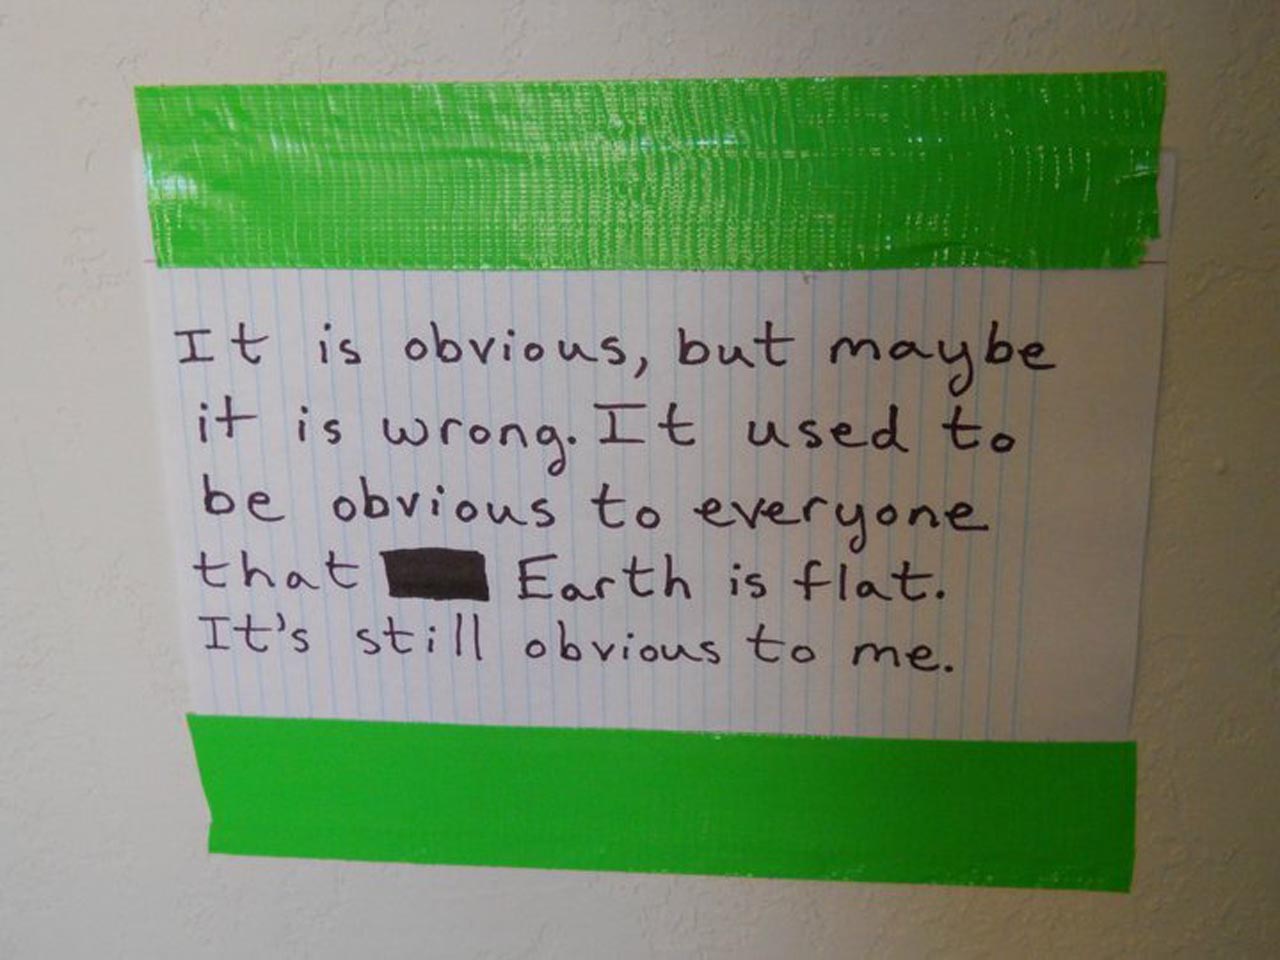 It is obvious, but maybe
it is wrong. It used to
be obvious to everyone
that Earth is flat.
It's still obvious to me.